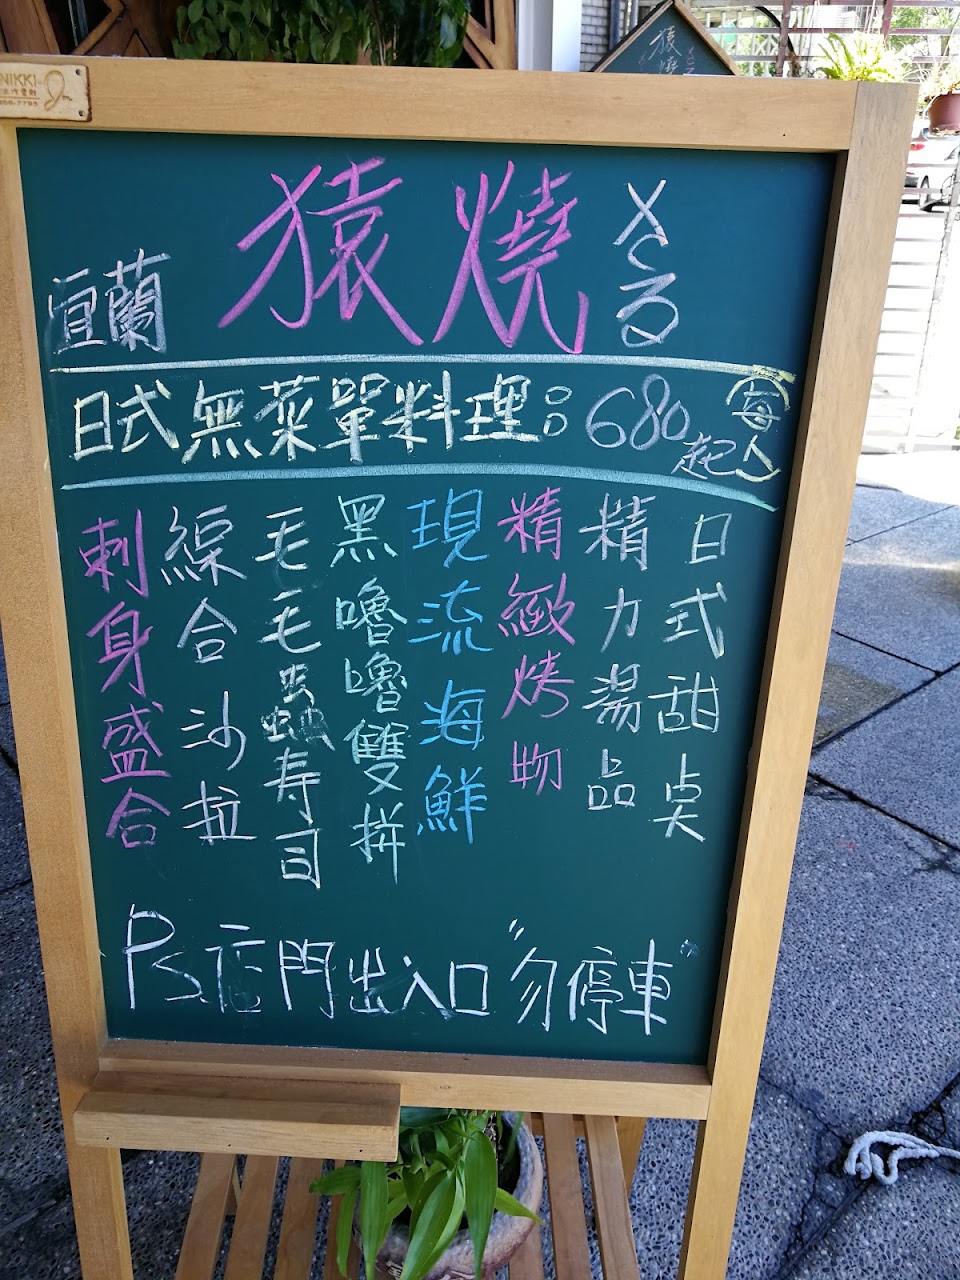 NIKKI
宜蘭 猿燒 さる
日式無菜單料理:680起 每人
刺身盛合
綜合沙拉
毛毛蟲蟲壽司
黑嚕嚕雙拼
現流海鮮
精緻烤物
精力湯品
日式甜桌
Ps.店門出入口"勿停車"
猿燒